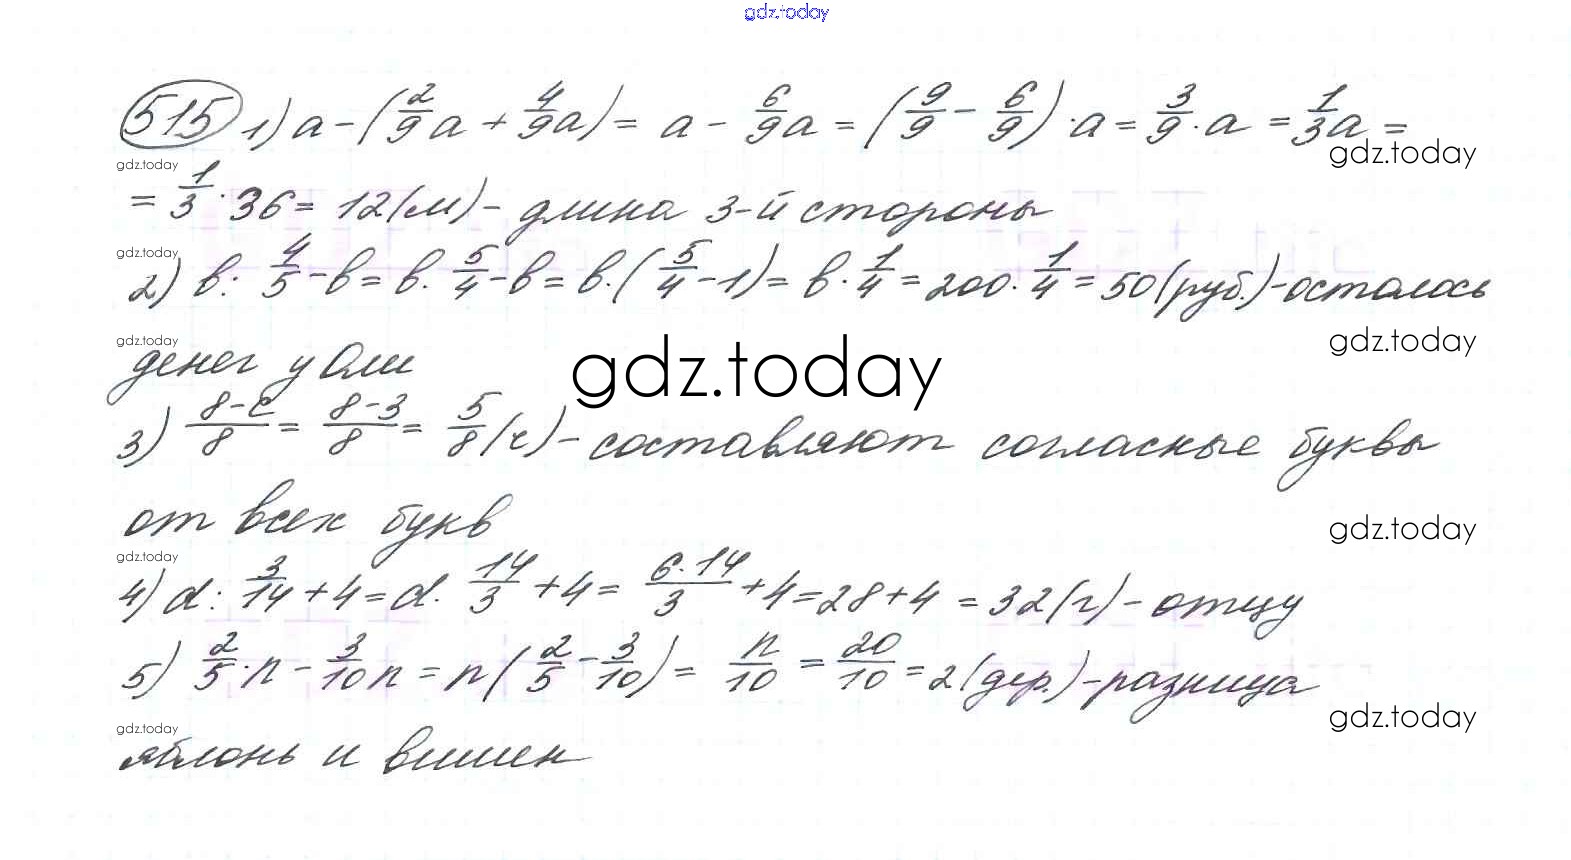 gdz.today
515 1) a - (2/9 a + 4/9 a) = a - 6/9 a = (9/9 - 6/9) · a = 3/9 · a = 1/3 a =
gdz.today
gdz.today
= 1/3 · 36 = 12 (м) - длина 3-й стороны
gdz.today
2) b : 4/5 - b = b · 5/4 - b = b · (5/4 - 1) = b · 1/4 = 200 · 1/4 = 50 (руб.) - осталось
gdz.today
gdz.today
gdz.today
денег у Оли
3) (8-c)/8 = (8-3)/8 = 5/8 (ч) - составляют согласные буквы
от всех букв
gdz.today
gdz.today
4) d : 3/14 + 4 = d · 14/3 + 4 = (6·14)/3 + 4 = 28 + 4 = 32 (г) - отцу
5) 2/5 · n - 3/10 n = n (2/5 - 3/10) = n/10 = 20/10 = 2 (дер.) - разница
gdz.today
gdz.today
яблонь и вишен